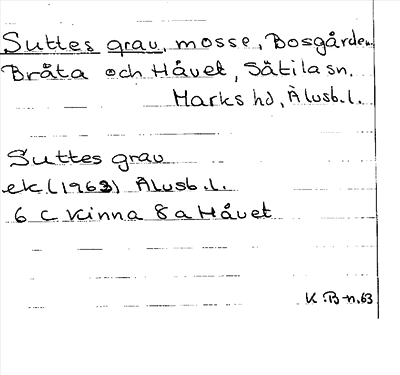 Suttes grav, mosse, Bosgården
Bråta och Håvet, Sätila sn.
Marks hd, Älvsb.l.
Suttes grav
ek.(1963) Älvsb.l.
6 C Kinna 8 a Håvet
K.B-n.63